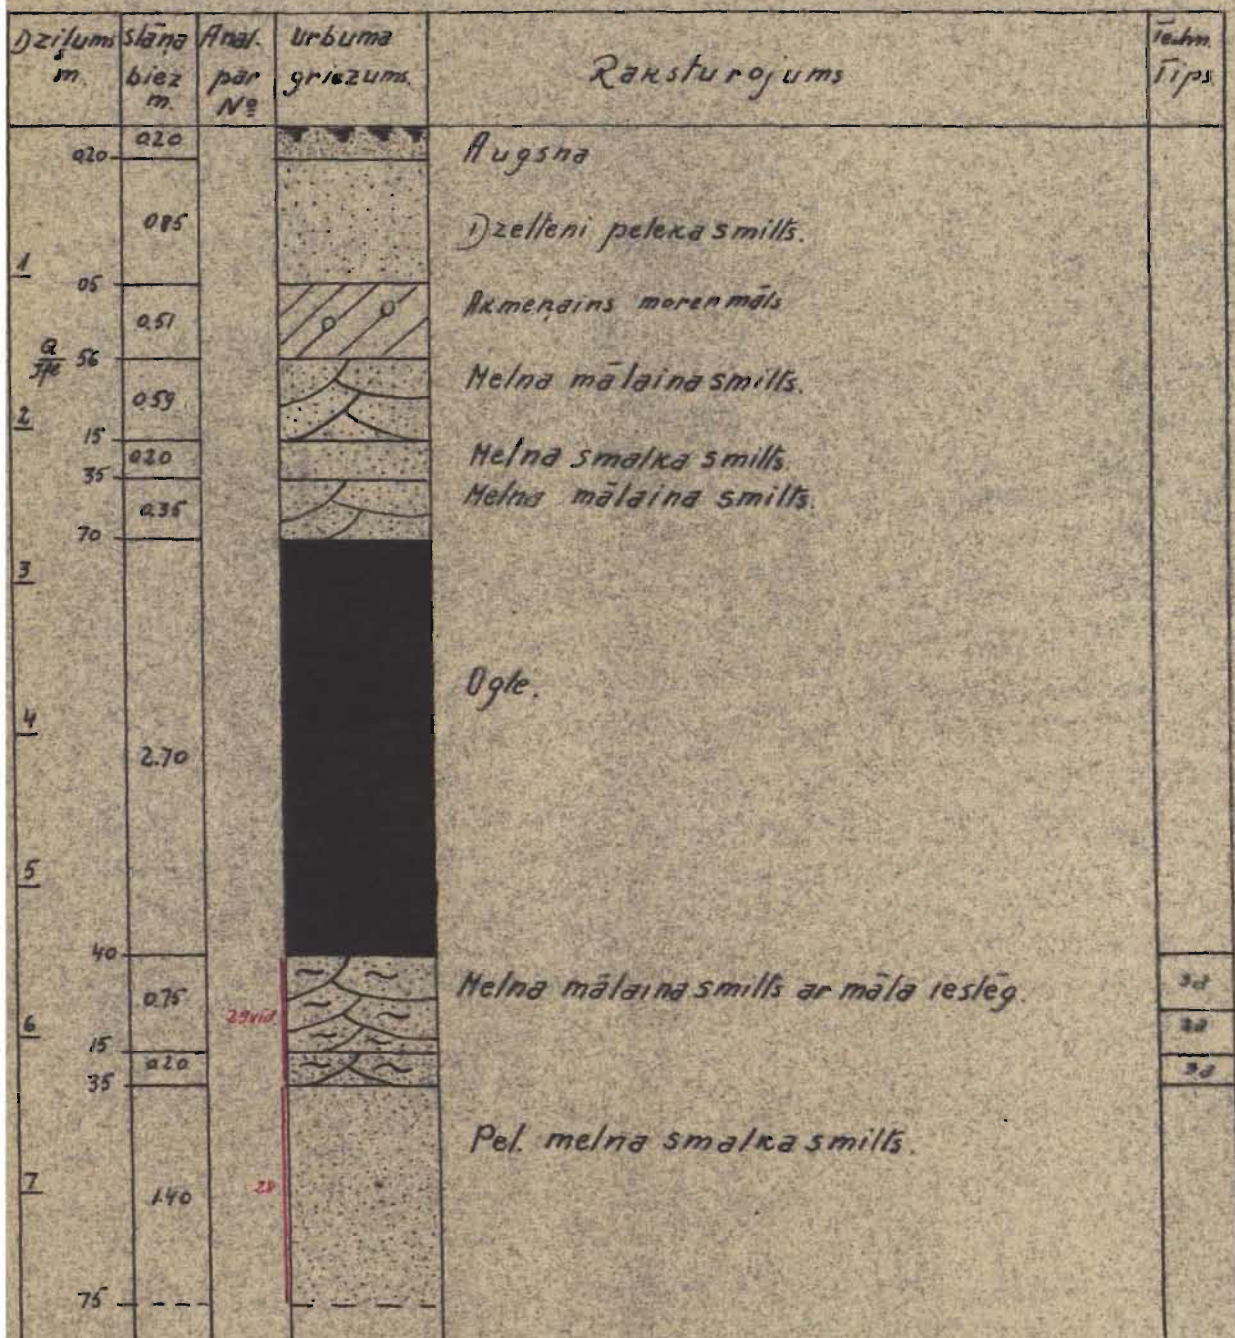 Dziļums m.
Slāņa biez m.
Anal. par №
Urbuma griezums.
Raksturojums
Techn. Tips
0.20
0.20
Augsna
0.85
Dzelteni peleka smilts.
1
05
0.51
Akmeņains moren māls
Q
56
0.59
Melna mālaina smilts.
2
15
0.20
Melna smalka smilts.
35
0.35
Melna mālaina smilts.
70
3
Ogle.
4
2.70
5
40
0.75
Melna mālaina smilts ar māla ieslēg.
3d
29vid
6
15
0.20
3d
35
Pel. melna smalka smilts.
7
1.40
28
75